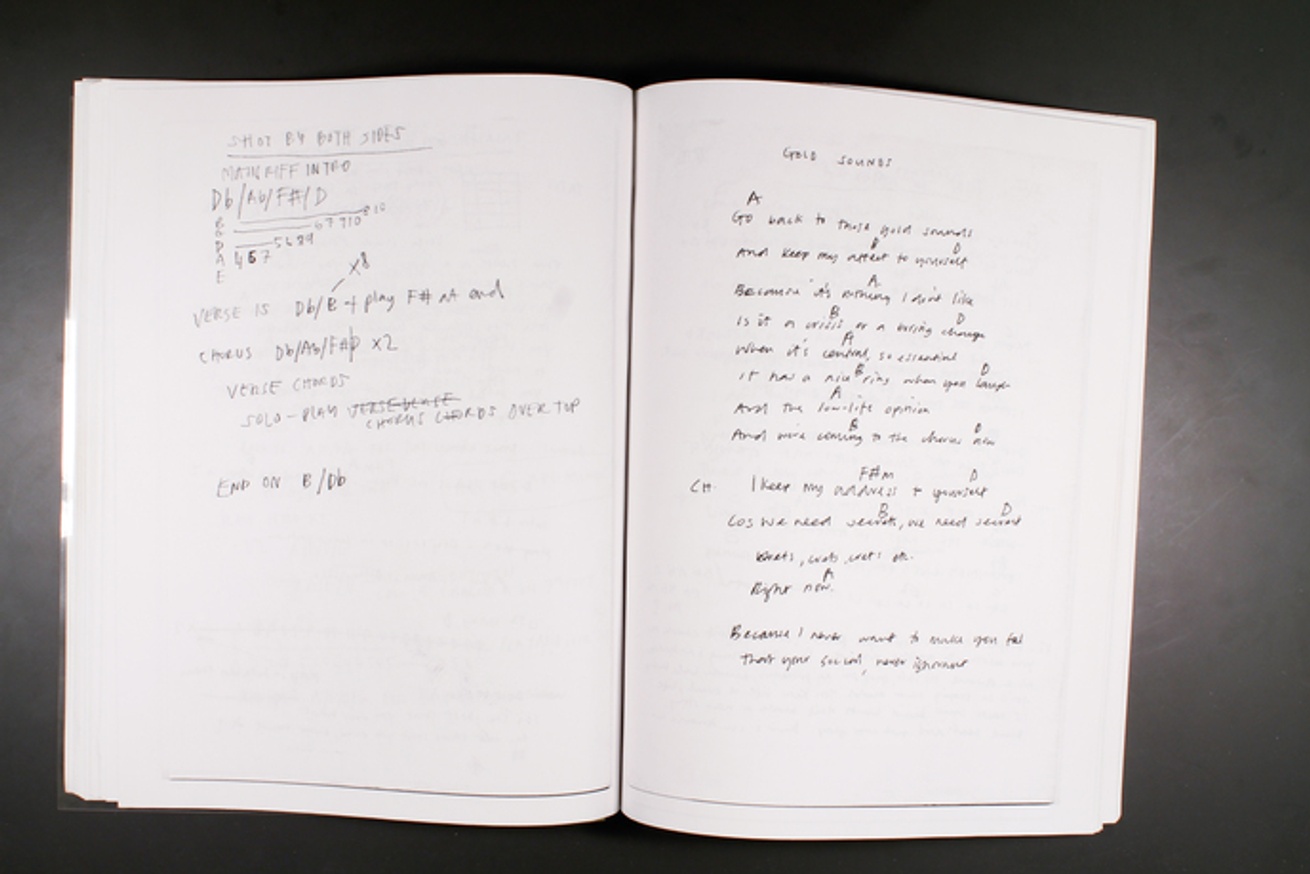 SHOT BY BOTH SIDES
MAIN RIFF INTRO
Db/Ab/F#/D
B 8 10
G 6 7 9 10
D 5 6 8 9
A 4 6 7
E
x8
VERSE IS Db/B + play F# at end
CHORUS Db/Ab/F#/D x2
VERSE CHORDS
SOLO - PLAY VERSE
CHORUS CHORDS OVER TOP
END ON B/Db
GOLD SOUNDS
A
Go back to those gold sounds
B D
And keep my to yourself
A
Because it's nothing I don't like
B D
Is it a crisis or a boring change
A
When it's central, so essential
B D
It has a nice ring when you laugh
A
And the low-life opinion
B D
And we're coming to the chorus now
F#m D
CH. I keep my address to yourself
B D
Cos we need secrets, we need secret
crets, crets, crets etc.
A
Right now.
Because I never want to make you feel
that your social, never ignorant